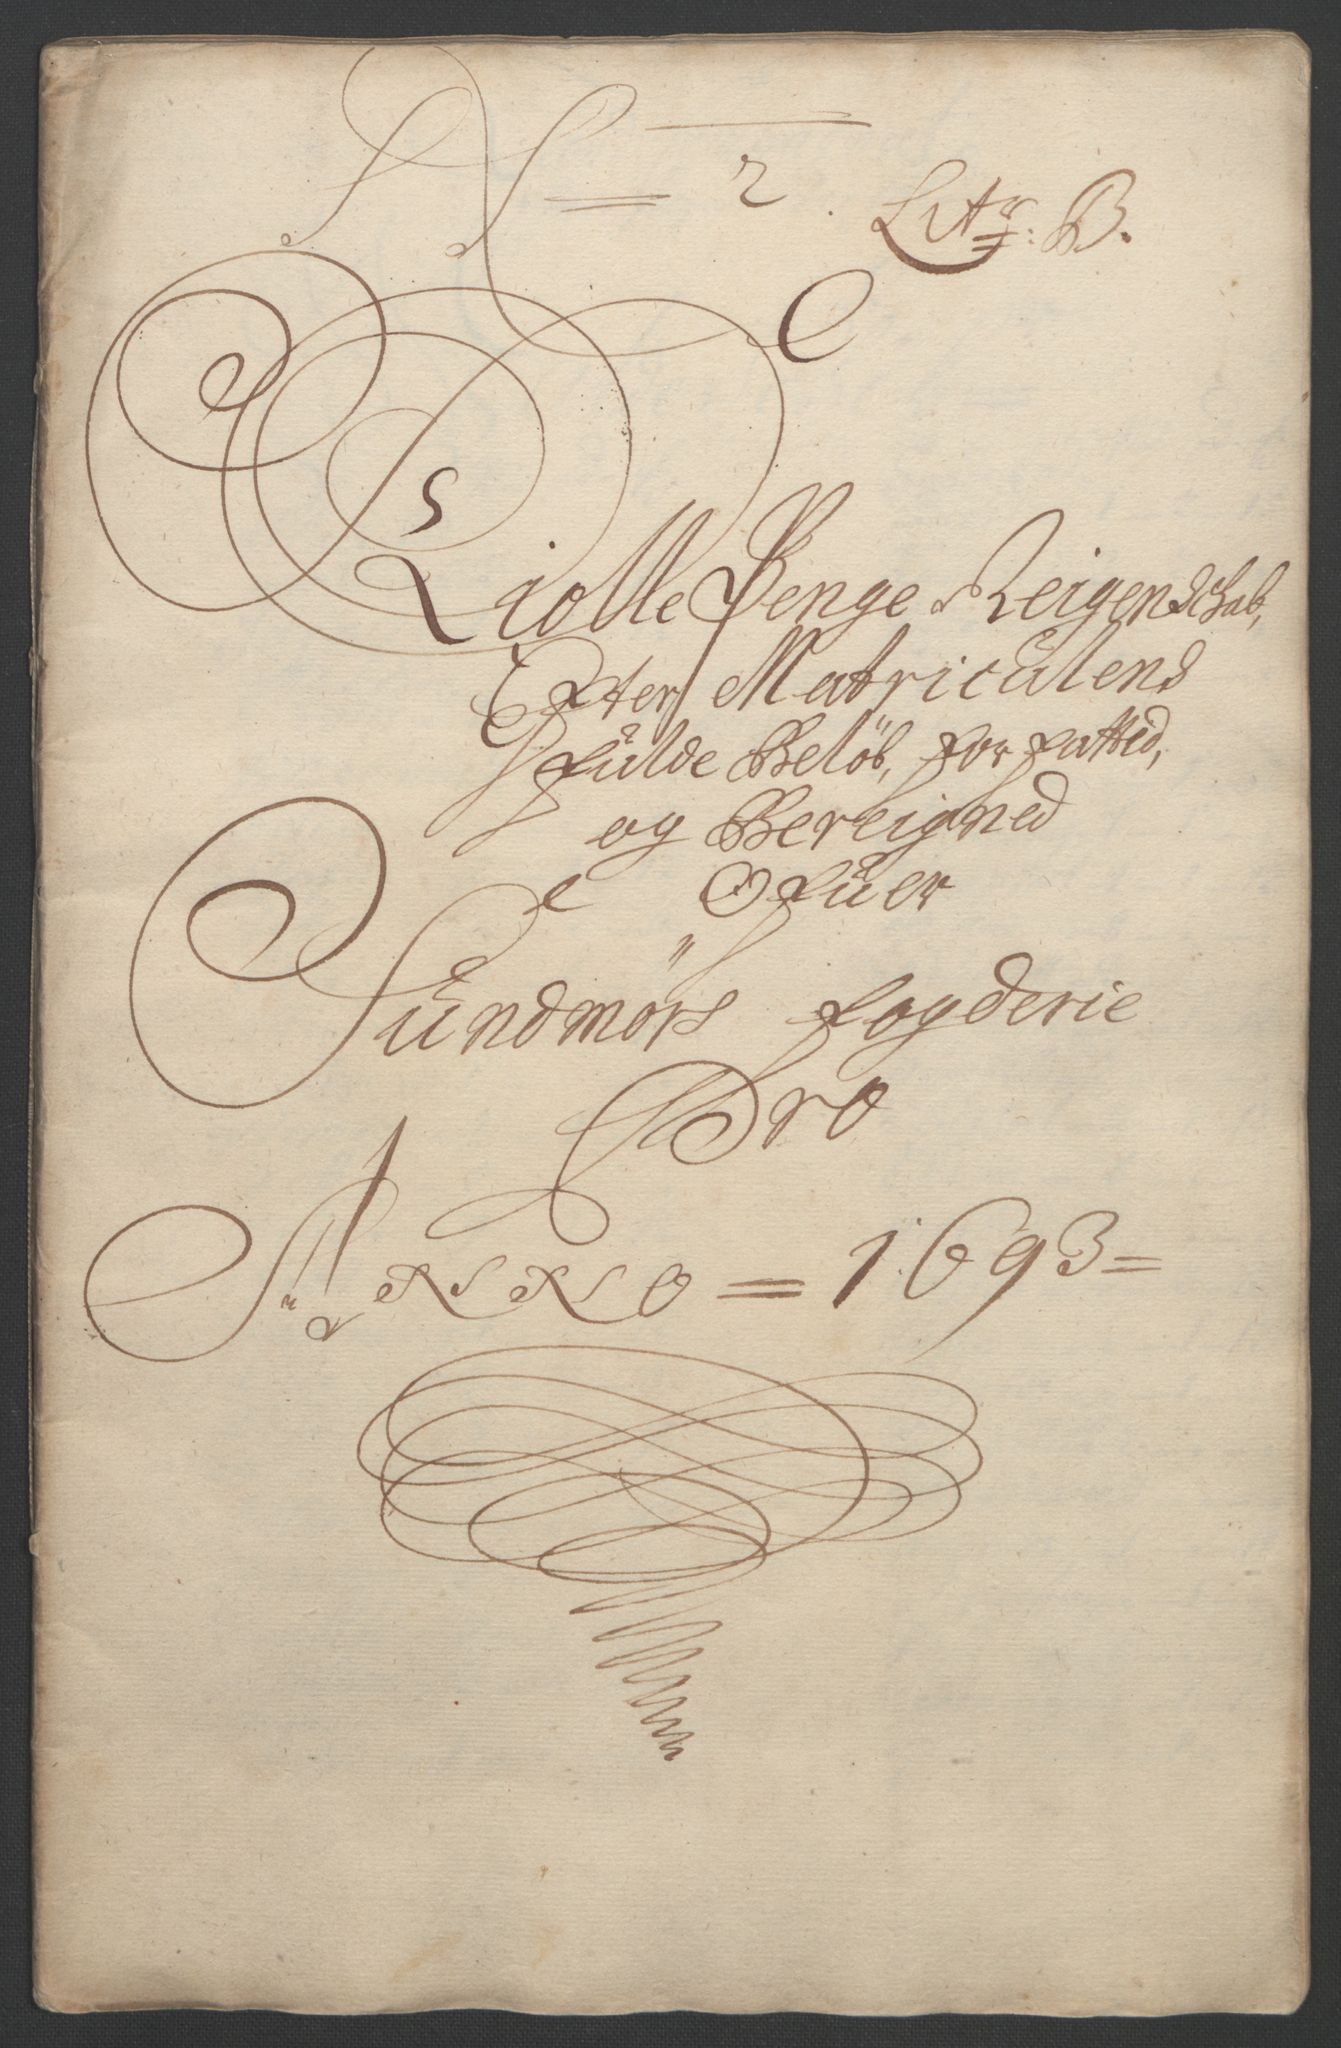 N = 2. Litr: B.
Kiolle Penge Reigenschab,
Efter Matriculens
fulde Beløb, forfatted,
og Bereigned
Ofuer
Sundmørs fogderie
Pro
ANNO = 1693 =